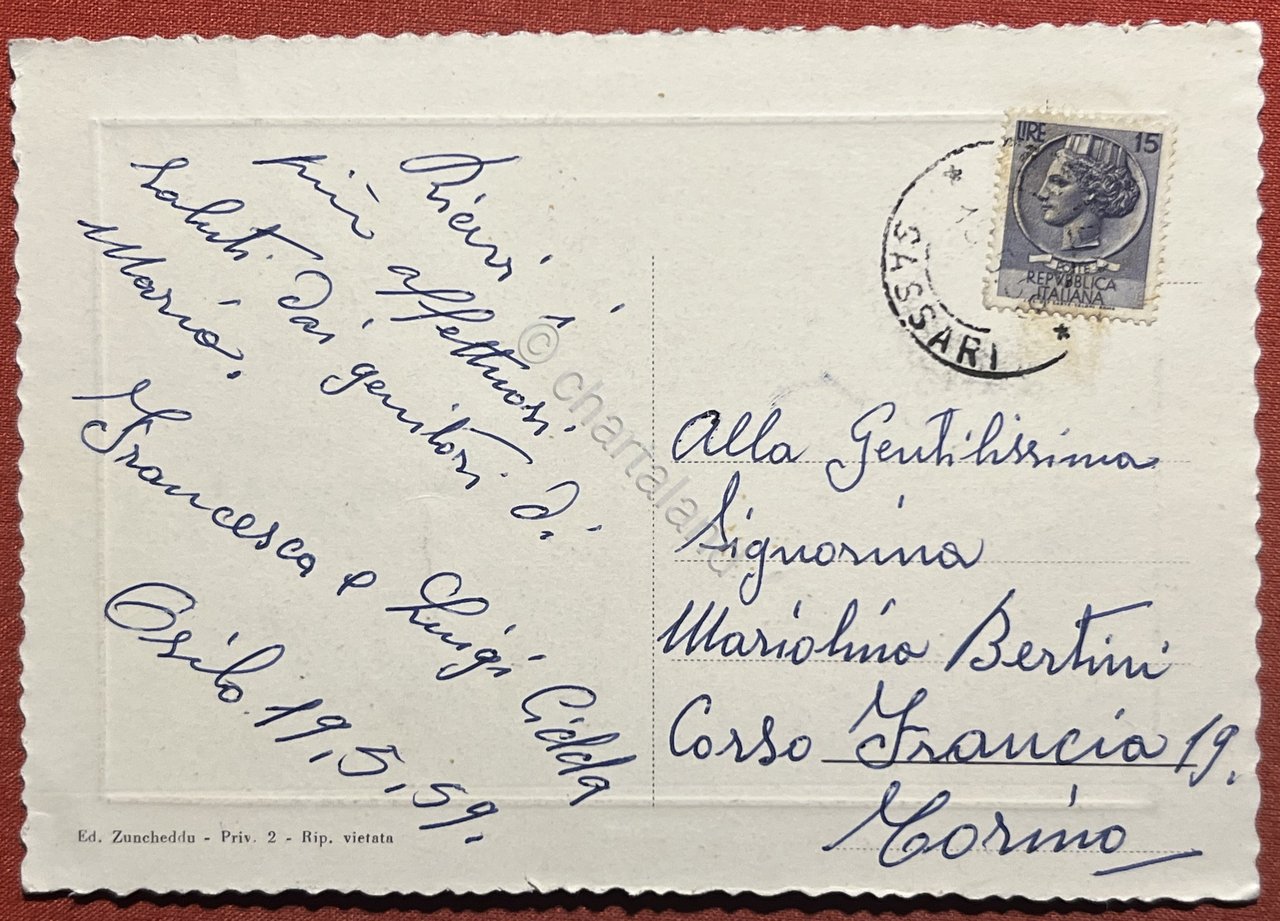 Ricevi i
più affettuosi
saluti dai genitori di
Mario.
Francesca e Luigi Cidda
Osilo. 19, 5, 59.
Ed. Zuncheddu - Priv. 2 - Rip. vietata
LIRE 15
POSTE
REPVBBLICA
ITALIANA
SASSARI
Alla Gentilissima
Signorina
Mariolina Bertini
Corso Francia 19.
Torino
© chartaland